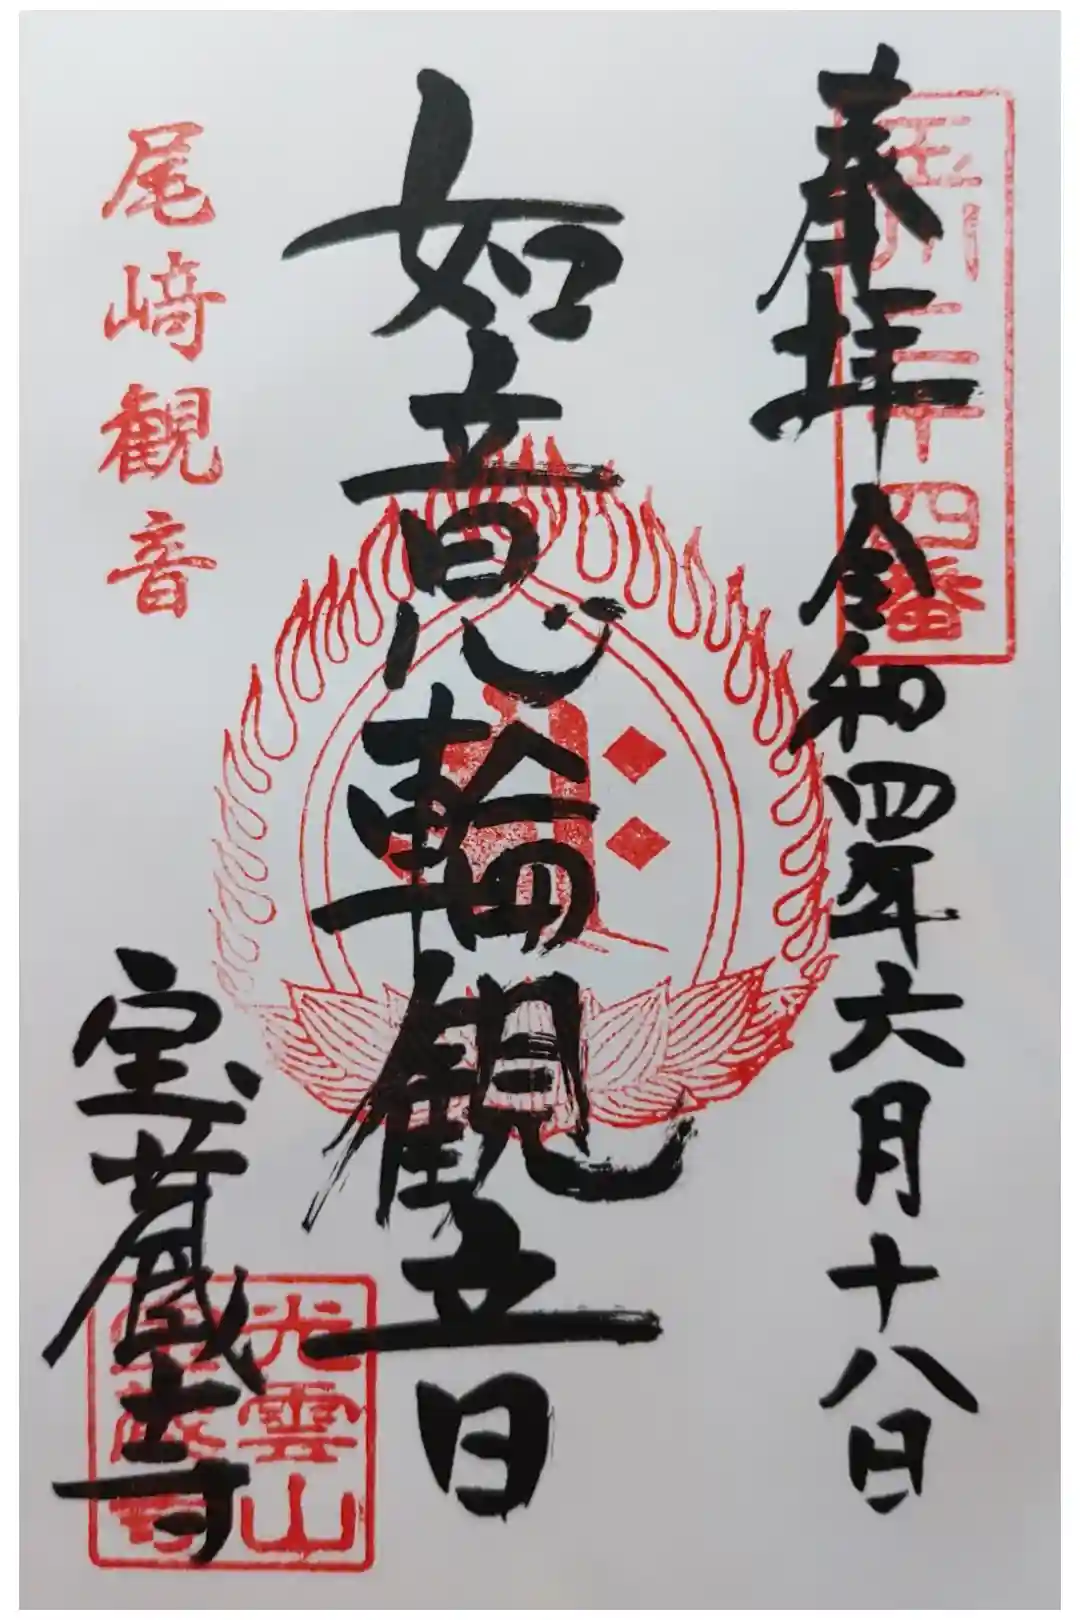 玉川二十四番
奉拝 令和四年六月十八日
如意輪観音
尾﨑観音
宝蔵寺
光雲山
宝蔵寺